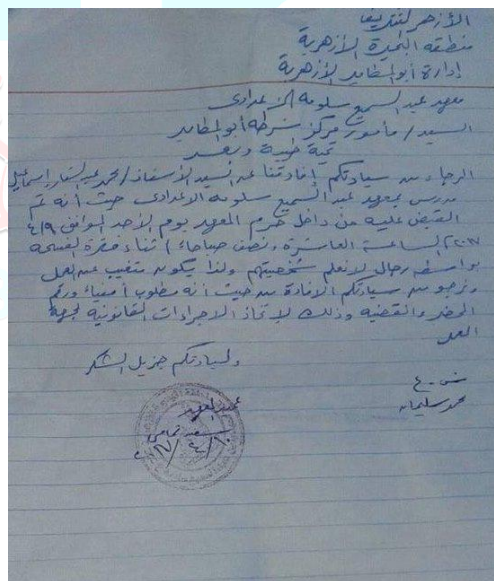 الأزهر الشريف
منطقة البحيرة الأزهرية
إدارة أبو المطامير الأزهرية
معهد عبد السميع سلومه الإعدادى
السيد / مأمور مركز شرطة أبو المطامير
تحية طيبة وبعد
الرجاء من سيادتكم إفادتنا عن السيد الأستاذ / محمد عبد الستار إسماعيل
مدرس بمعهد عبد السميع سلومه الاعدادى حيث أنه تم
القبض عليه من داخل حرم المعهد يوم الأحد الموافق ٤/٩
٢٠١٧ الساعة العاشرة ونصف صباحاً / أثناء فترة الفسحة
بواسطة رجال لا نعلم شخصيتهم ولذا يكون متغيب عن العمل
ونرجو من سيادتكم الافادة من حيث أنه مطلوب أمنياً ورقم
المحضر والقضية وذلك لاتخاذ الاجراءات القانونية لجهة
العمل
ولسيادتكم جزيل الشكر
ش . ع
محمد سليمان
المعهد